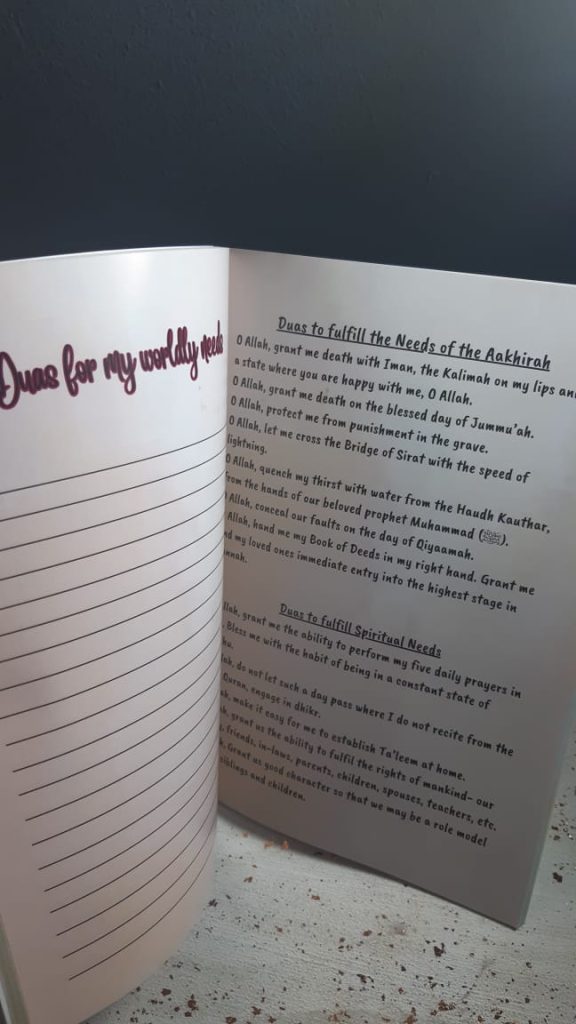 Duas for my worldly needs
Duas to fulfill the Needs of the Aakhirah
O Allah, grant me death with Iman, the Kalimah on my lips and
a state where you are happy with me, O Allah.
O Allah, grant me death on the blessed day of Jummu'ah.
O Allah, protect me from punishment in the grave.
O Allah, let me cross the Bridge of Sirat with the speed of
lightning.
O Allah, quench my thirst with water from the Haudh Kauthar,
from the hands of our beloved prophet Muhammad (ﷺ).
Allah, conceal our faults on the day of Qiyaamah.
Allah, hand me my Book of Deeds in my right hand. Grant me
nd my loved ones immediate entry into the highest stage in
nnah.
Duas to fulfill Spiritual Needs
llah, grant me the ability to perform my five daily prayers in
. Bless me with the habit of being in a constant state of
hu.
lah, do not let such a day pass where I do not recite from the
Quran, engage in dhikr.
ah, make it easy for me to establish Ta'leem at home.
ah, grant us the ability to fulfil the rights of mankind- our
, friends, in-laws, parents, children, spouses, teachers, etc.
h, Grant us good character so that we may be a role model
siblings and children.